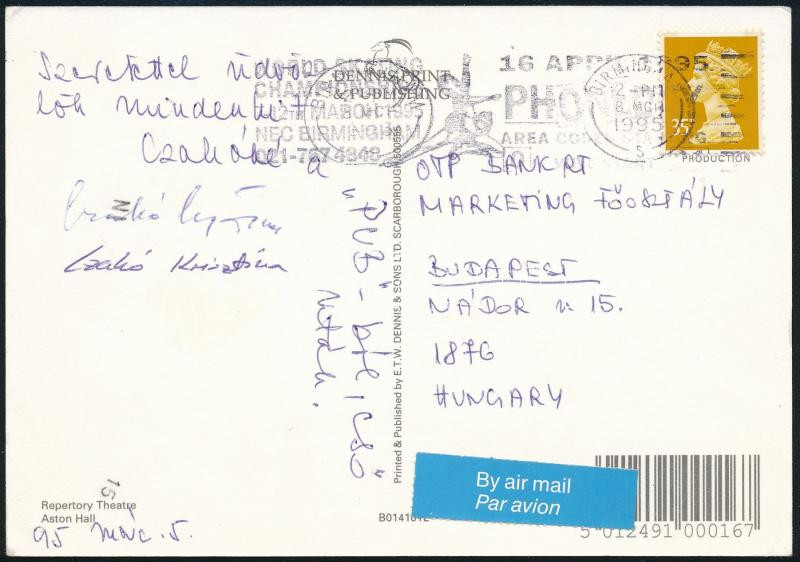 Szeretettel üdvöz-
lök mindenkit
Czakóné a
"PUB"-ből, első
után.
Czakó
Czakó Krisztina
Repertory Theatre
Aston Hall
95 márc. 5.
15
DENNIS PRINT
& PUBLISHING
WORLD
CHAMPIONSHIPS
12TH MARCH 1995
NEC BIRMINGHAM
021-767 4848
16 APRIL 1995
PHONE
AREA CODE
BIRMINGHAM
2-PM
8 MCH
1995
S
35
PRODUCTION
OTP BANK RT
MARKETING FŐOSZTÁLY
BUDAPEST
NÁDOR u. 15.
1876
HUNGARY
Printed & Published by E.T.W. DENNIS & SONS LTD. SCARBOROUGH 500585
By air mail
Par avion
B014101L
5 012491 000167